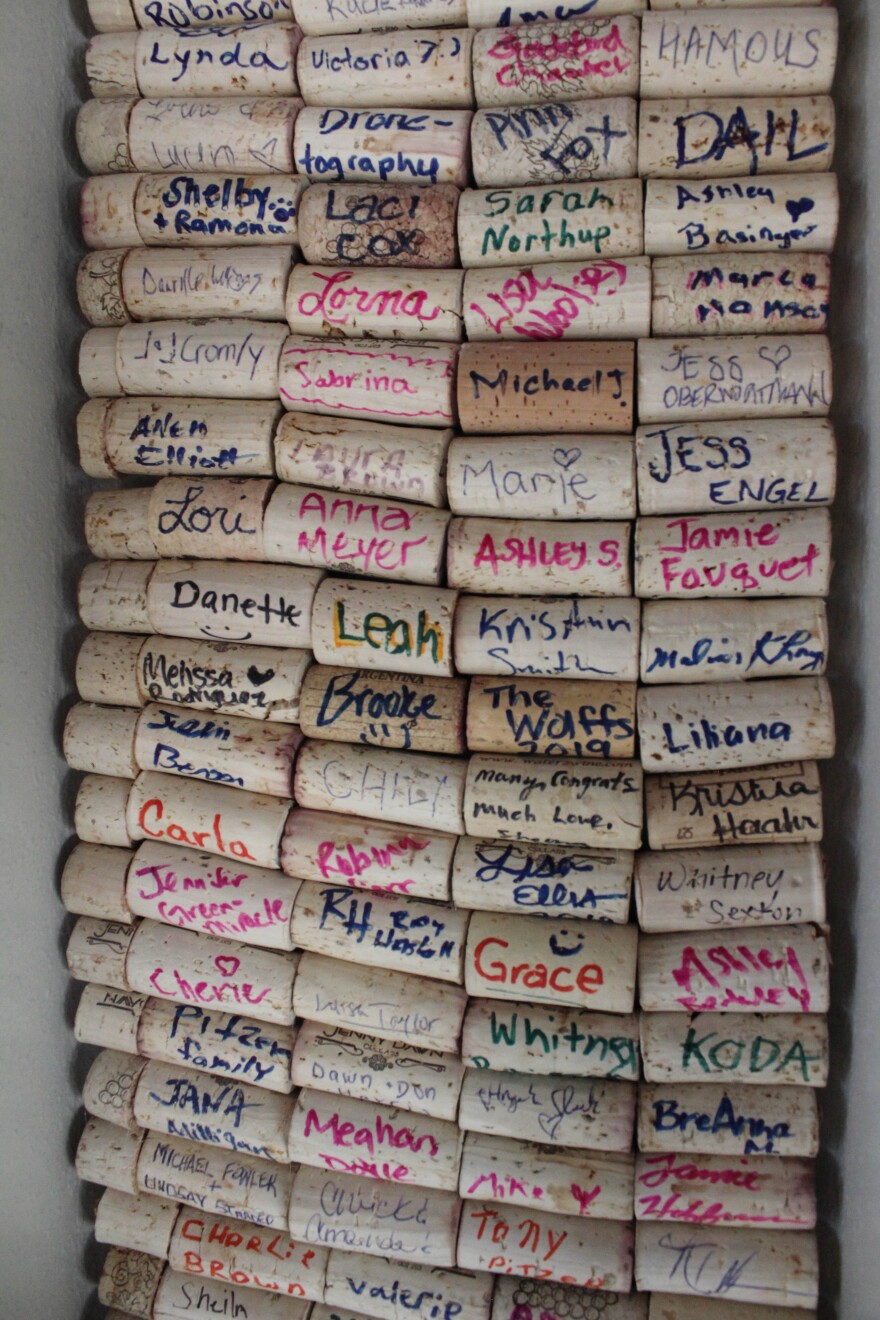 Robinson
Lynda
Victoria
HAMOUS
Drone-
tography
Pinn
Fox
DAIL
Shelby
+ Ramona
Laci
Cox
Sarah
Northup
Ashley
Basinger
Lorna
Lisa
Marca
Sabrina
Michael J.
JESS
Elliott
Laura
Marie
JESS
ENGEL
Lori
Anna
Meyer
ASHLEY S.
Jamie
Fouquet
Danette
Leah
KrisAnn
Smith
Melissa
Rodriguez
ARGENTINA
Brooke
The
Wolffs
2019
Liliana
Many Congrats
Much Love,
Kristina
Carla
Robin
Lisa
Ellis
Whitney
Sexton
Jennifer
Green-
RH Roy
Grace
Ashley
Cherie
Taylor
Pitzer
family
JENNY DAWN
CELLARS
Dawn + Don
Whitney
KODA
JANA
Milligan
Meghan
Doyle
BreAnna
M.
MICHAEL FOWLER
+
LINDSAY
Chuck &
Amanda
Mike
Jamie
CHARLIE
BROWN
Tony
Pitzer
Sheila
Valerie